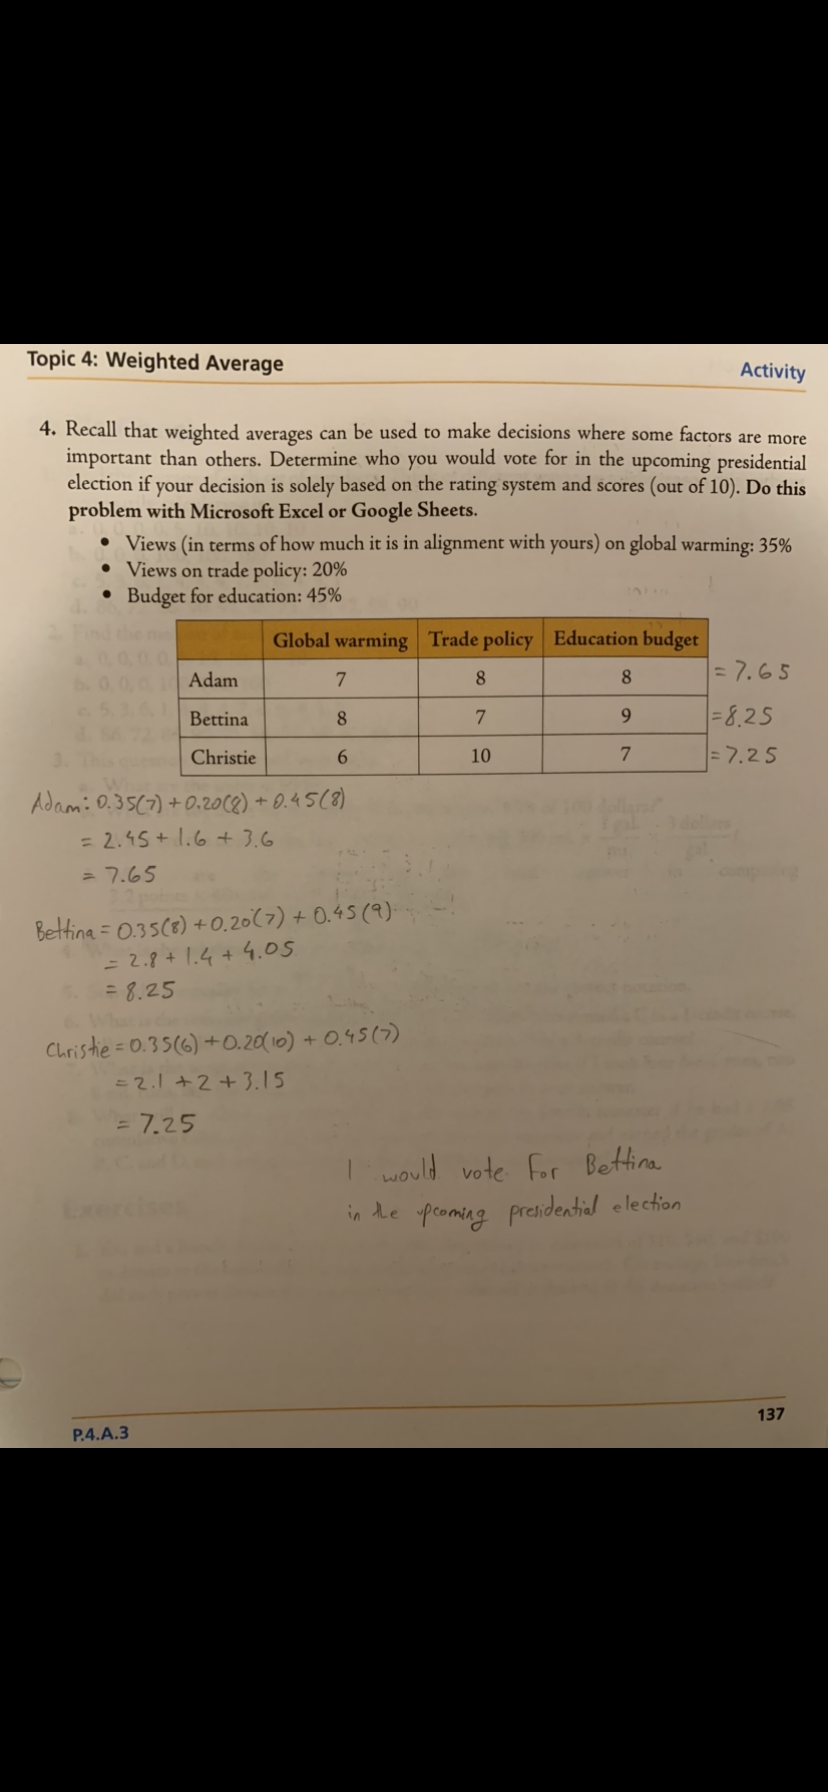 Topic 4: Weighted Average
Activity
4. Recall that weighted averages can be used to make decisions where some factors are more
important than others. Determine who you would vote for in the upcoming presidential
election if your decision is solely based on the rating system and scores (out of 10). Do this
problem with Microsoft Excel or Google Sheets.
• Views (in terms of how much it is in alignment with yours) on global warming: 35%
• Views on trade policy: 20%
• Budget for education: 45%
Global warming Trade policy Education budget
Adam 7 8 8 = 7.65
Bettina 8 7 9 = 8.25
Christie 6 10 7 = 7.25
Adam: 0.35(7) + 0.20(8) + 0.45(8)
= 2.45 + 1.6 + 3.6
= 7.65
Bettina = 0.35(8) + 0.20(7) + 0.45(9)
= 2.8 + 1.4 + 4.05
= 8.25
Christie = 0.35(6) + 0.20(10) + 0.45(7)
= 2.1 + 2 + 3.15
= 7.25
I would vote for Bettina
in the upcoming presidential election
P.4.A.3
137